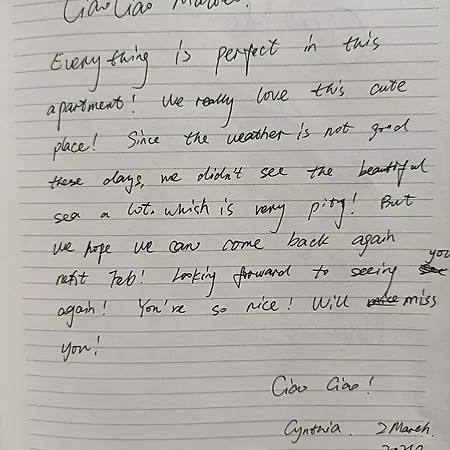 Ciao Ciao
Everything is perfect in this
apartment! We really love this cute
place! Since the weather is not good
these days, we didn't see the beautiful
sea a lot. which is very pity! But
we hope we can come back again
next Feb! Looking forward to seeing you
again! You're so nice! Will miss
you!
Ciao Ciao!
Cynthia. 2 March.